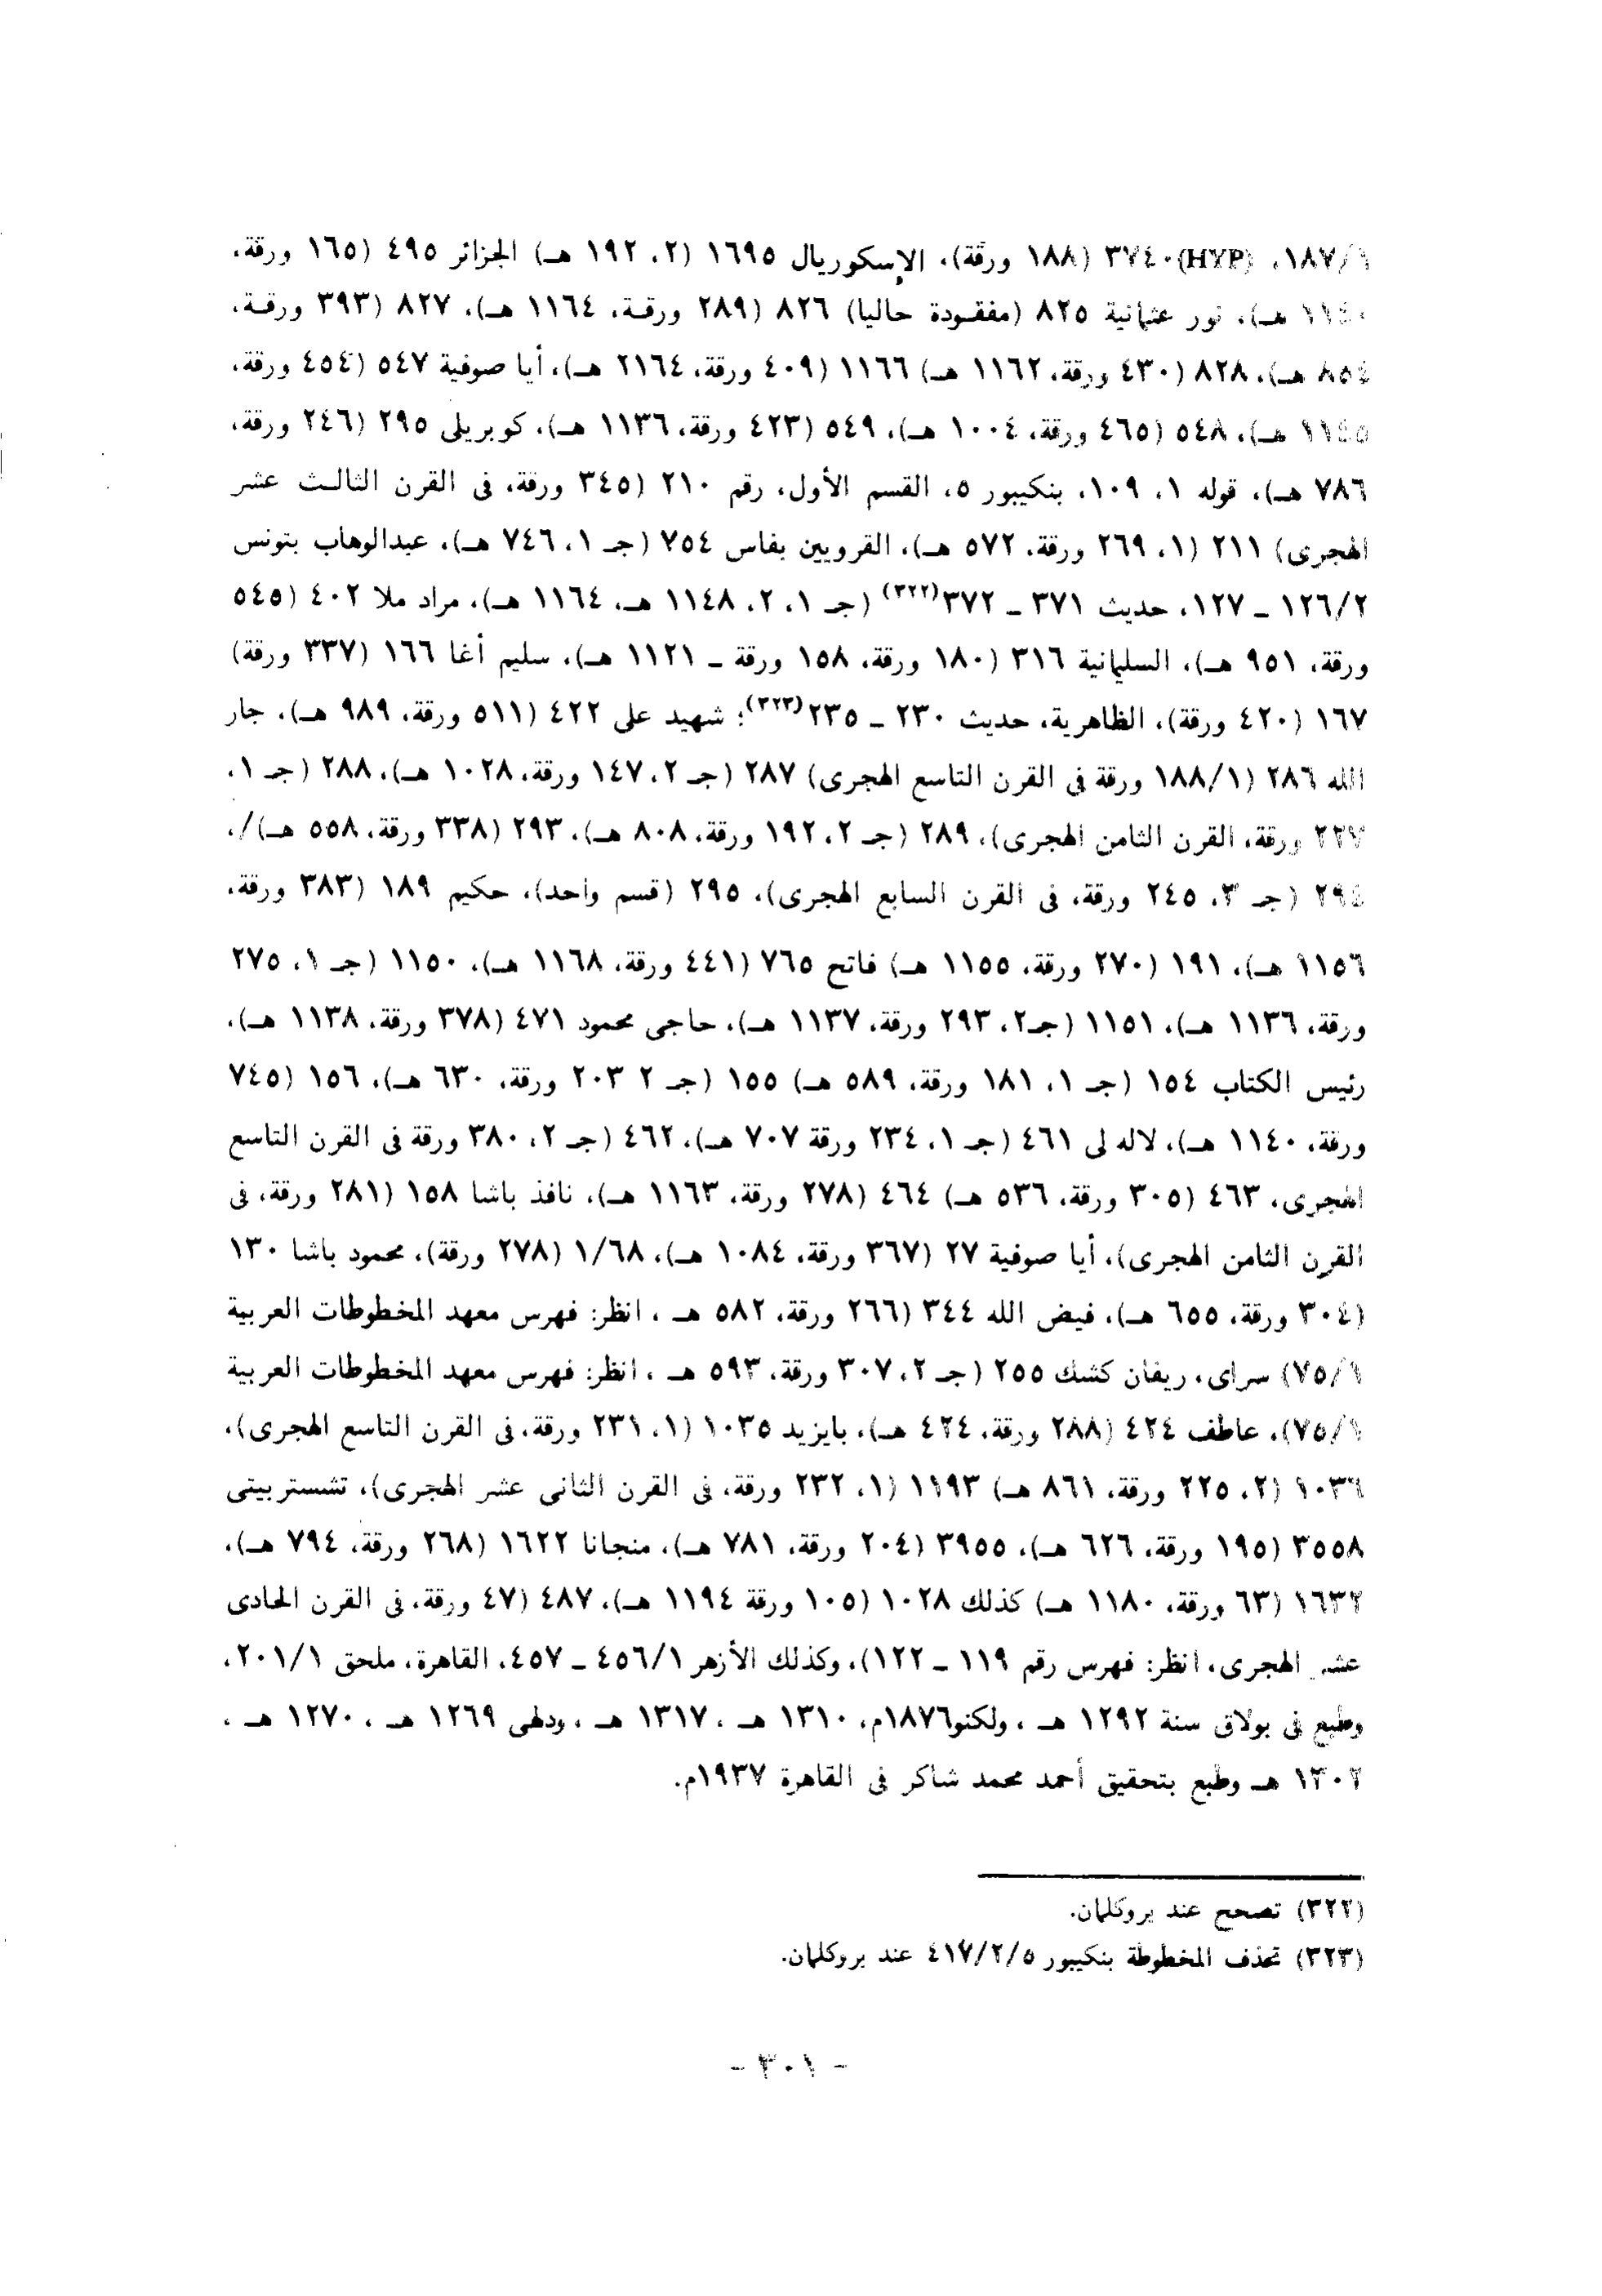 ١٨٧/٦، (HYP)٣٧٤٠ (١٨٨ ورقة)، الإسكوريال ١٦٩٥ (٢، ١٩٢ هـ) الجزائر ٤٩٥ (١٦٥ ورقة،
١١٤٠ هـ)، نور عثمانية ٨٢٥ (مفقودة حاليا) ٨٢٦ (٢٨٩ ورقة، ١١٦٤ هـ)، ٨٢٧ (٣٩٣ ورقة،
٨٥٤ هـ)، ٨٢٨ (٤٣٠ ورقة، ١١٦٢ هـ) ١١٦٦ (٤٠٩ ورقة، ٢١٦٤ هـ)، أيا صوفية ٥٤٧ (٤٥٤ ورقة،
١١٤٥ هـ)، ٥٤٨ (٤٦٥ ورقة، ١٠٠٤ هـ)، ٥٤٩ (٤٢٣ ورقة، ١١٣٦ هـ)، كوبريلى ٢٩٥ (٢٤٦ ورقة،
٧٨٦ هـ)، قوله ١، ١٠٩، بنكيبور ٥، القسم الأول، رقم ٢١٠ (٣٤٥ ورقة، فى القرن الثالث عشر
الهجرى) ٢١١ (١، ٢٦٩ ورقة، ٥٧٢ هـ)، القرويين بفاس ٧٥٤ (جـ ١، ٧٤٦ هـ)، عبدالوهاب بتونس
١٢٦/٢ – ١٢٧، حديث ٣٧١ – ٣٧٢(٣٢٢) (جـ ١، ٢، ١١٤٨ هـ، ١١٦٤ هـ)، مراد ملا ٤٠٢ (٥٤٥
ورقة، ٩٥١ هـ)، السليمانية ٣١٦ (١٨٠ ورقة، ١٥٨ ورقة – ١١٢١ هـ)، سليم أغا ١٦٦ (٣٣٧ ورقة)
١٦٧ (٤٢٠ ورقة)، الظاهرية، حديث ٢٣٠ – ٢٣٥(٣٢٣)؛ شهيد على ٤٢٢ (٥١١ ورقة، ٩٨٩ هـ)، جار
الله ٢٨٦ (١٨٨/١ ورقة فى القرن التاسع الهجرى) ٢٨٧ (جـ ٢، ١٤٧ ورقة، ١٠٢٨ هـ)، ٢٨٨ (جـ ١،
٢٢٧ ورقة، القرن الثامن الهجرى)، ٢٨٩ (جـ ٢، ١٩٢ ورقة، ٨٠٨ هـ)، ٢٩٣ (٣٣٨ ورقة، ٥٥٨ هـ)/،
٢٩٤ (جـ ٣، ٢٤٥ ورقة، فى القرن السابع الهجرى)، ٢٩٥ (قسم واحد)، حكيم ١٨٩ (٣٨٣ ورقة،
١١٥٦ هـ)، ١٩١ (٢٧٠ ورقة، ١١٥٥ هـ) فاتح ٧٦٥ (٤٤١ ورقة، ١١٦٨ هـ)، ١١٥٠ (جـ ١، ٢٧٥
ورقة، ١١٣٦ هـ)، ١١٥١ (جـ٢، ٢٩٣ ورقة، ١١٣٧ هـ)، حاجى محمود ٤٧١ (٣٧٨ ورقة، ١١٣٨ هـ)،
رئيس الكتاب ١٥٤ (جـ ١، ١٨١ ورقة، ٥٨٩ هـ) ١٥٥ (جـ ٢ ٢٠٣ ورقة، ٦٣٠ هـ)، ١٥٦ (٧٤٥
ورقة، ١١٤٠ هـ)، لاله لى ٤٦١ (جـ ١، ٢٣٤ ورقة ٧٠٧ هـ)، ٤٦٢ (جـ ٢، ٣٨٠ ورقة فى القرن التاسع
الهجرى، ٤٦٣ (٣٠٥ ورقة، ٥٣٦ هـ) ٤٦٤ (٢٧٨ ورقة، ١١٦٣ هـ)، نافذ باشا ١٥٨ (٢٨١ ورقة، فى
القرن الثامن الهجرى)، أيا صوفية ٢٧ (٣٦٧ ورقة، ١٠٨٤ هـ)، ١/٦٨ (٢٧٨ ورقة)، محمود باشا ١٣٠
(٣٠٤ ورقة، ٦٥٥ هـ)، فيض الله ٣٤٤ (٢٦٦ ورقة، ٥٨٢ هـ ، انظر: فهرس معهد المخطوطات العربية
٧٥/١) سراى، ريفان كشك ٢٥٥ (جـ ٢، ٣٠٧ ورقة، ٥٩٣ هـ ، انظر: فهرس معهد المخطوطات العربية
٧٥/١)، عاطف ٤٢٤ (٢٨٨ ورقة، ٤٢٤ هـ)، بايزيد ١٠٣٥ (١، ٢٣١ ورقة، فى القرن التاسع الهجرى)،
١٠٣٦ (٢، ٢٢٥ ورقة، ٨٦١ هـ) ١١٩٣ (١، ٢٣٢ ورقة، فى القرن الثانى عشر الهجرى)، تشستربيتى
٣٥٥٨ (١٩٥ ورقة، ٦٢٦ هـ)، ٣٩٥٥ (٢٠٤ ورقة، ٧٨١ هـ)، منجانا ١٦٢٢ (٢٦٨ ورقة، ٧٩٤ هـ)،
١٦٣٢ (٦٣ ورقة، ١١٨٠ هـ) كذلك ١٠٢٨ (١٠٥ ورقة ١١٩٤ هـ)، ٤٨٧ (٤٧ ورقة، فى القرن الحادى
عشر الهجرى، انظر: فهرس رقم ١١٩ – ١٢٢)، وكذلك الأزهر ٤٥٦/١ – ٤٥٧، القاهرة، ملحق ٢٠١/١،
وطبع فى بولاق سنة ١٢٩٢ هـ ، ولكنو١٨٧٦م، ١٣١٠ هـ ، ١٣١٧ هـ ، ودلهى ١٢٦٩ هـ ، ١٢٧٠ هـ ،
١٣٠٢ هـ وطبع بتحقيق أحمد محمد شاكر فى القاهرة ١٩٣٧م.
(٣٢٢) تصحح عند بروكلمان.
(٣٢٣) تحذف المخطوطة بنكيبور ٤١٧/٢/٥ عند بروكلمان.
- ٣٠١ -